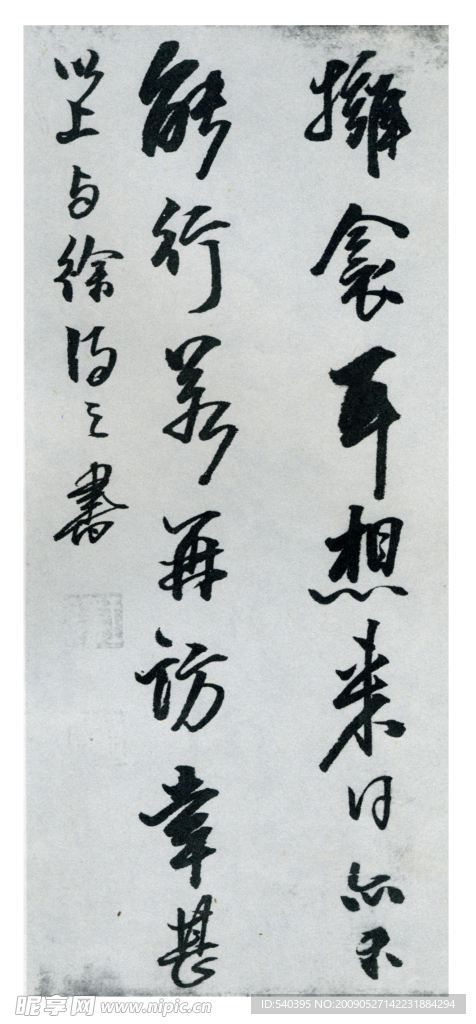 擁衾耳想来日亦不
能行若再訪幸甚
以上与徐得之書
昵享网 www.nipic.cn
ID:540395 NO:20090527142231884294